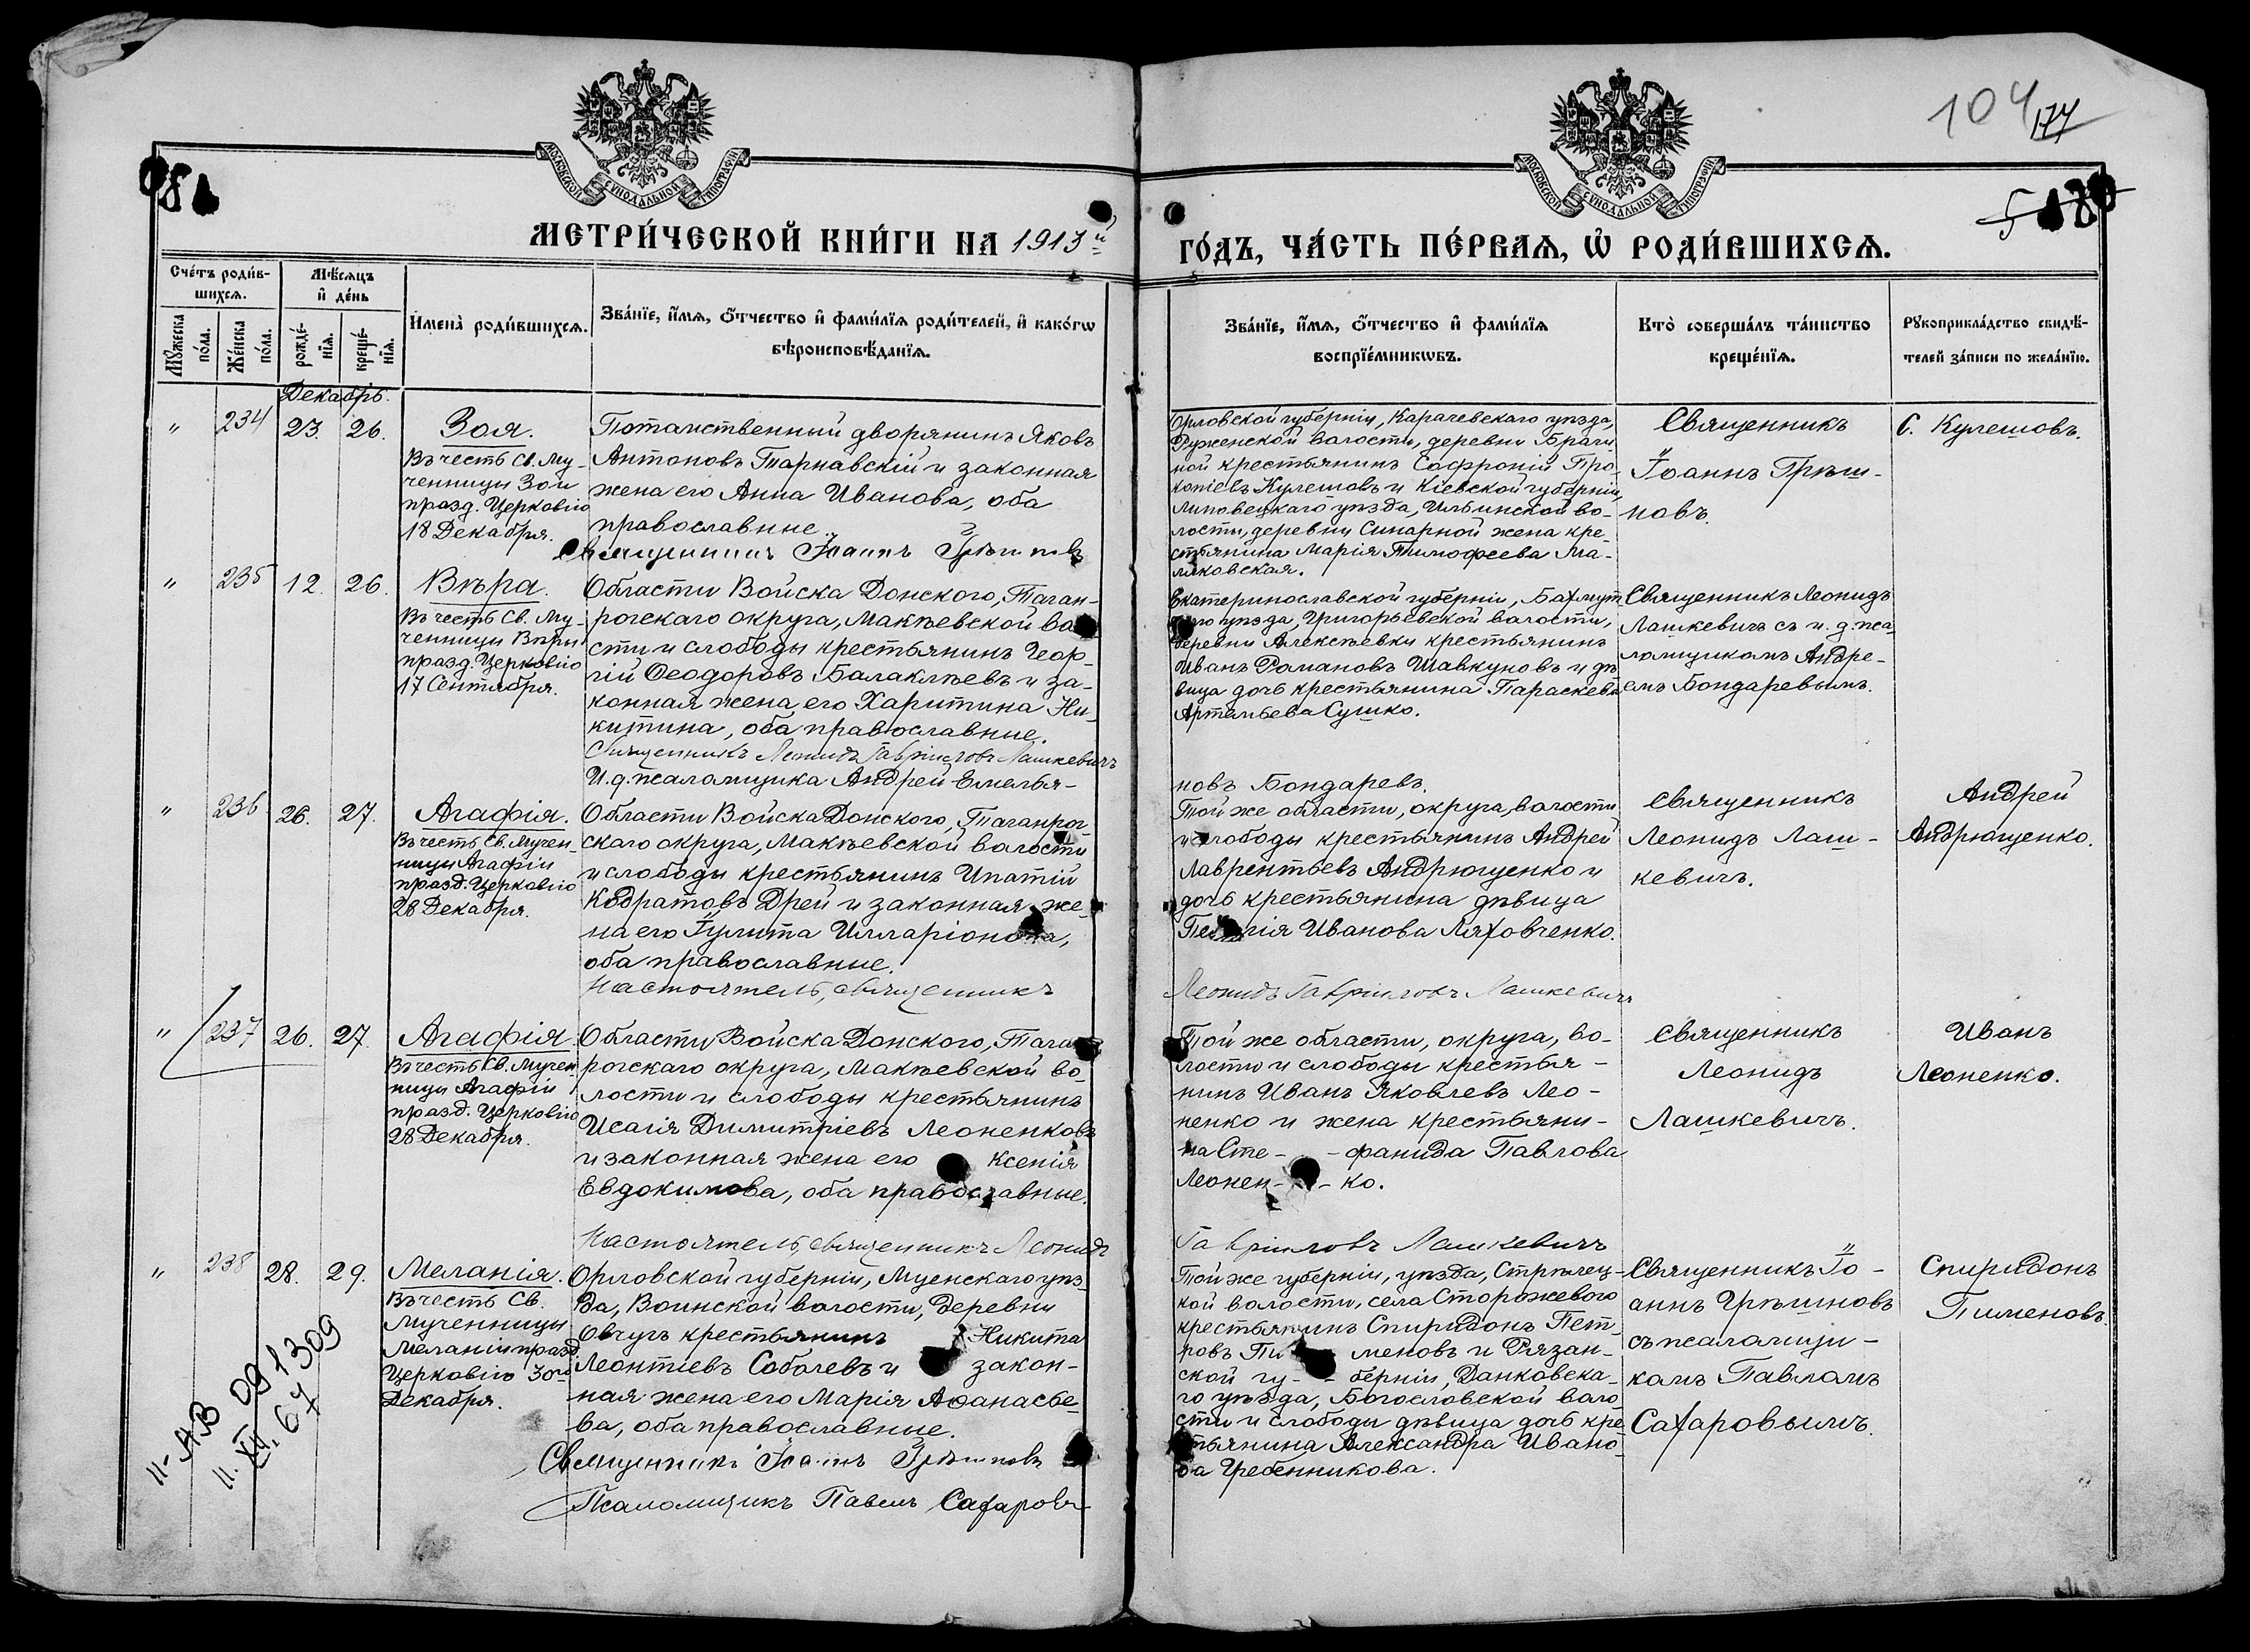 104
177
МОСКОВСКОЙ СѴНОДАЛЬНОЙ ТИПОГРАФІИ
МОСКОВСКОЙ СѴНОДАЛЬНОЙ ТИПОГРАФІИ
МЕТРИ́ЧЕСКОЙ КНИ́ГИ НА 1913й
ГО́ДЪ, ЧА́СТЬ ПЕ́РВАѦ, Ѡ҆ РОДИ́ВШИХСѦ.
Сче́тъ роди́в-
шихсѧ.
Мꙋ́жеска
по́ла.
Же́нска
по́ла.
Мѣ́сѧцъ
и҆ де́нь
рожде́-
нїѧ.
креще́-
нїѧ.
И҆мена̀ роди́вшихсѧ.
Зва́нїе, и҆́мѧ, ѻ҆́тчество и҆ фами́лїѧ роди́телей, и҆ како́гѡ
вѣроисповѣ́данїѧ.
Зва́нїе, и҆́мѧ, ѻ҆́тчество и҆ фами́лїѧ
воспрїе́мникѡвъ.
Кто̀ соверша́лъ та́инство
креще́нїѧ.
Рꙋкоприкла́дство свидѣ́-
телей за́писи по жела́нїю.
Декабрь.
" 234 23. 26.
Зоя.
Въ честь Св. Му-
ченницы Зои
празд. Церковію
18 Декабря.
Потомственный дворянинъ Яковъ
Антоновъ Тарнавскій и законная
жена его Анна Иванова, оба
православные.
Священникъ Іоаннъ Грѣшновъ
Орловской губерніи, Карачевскаго уѣзда,
Друженской волости, деревни Брати-
ной крестьянинъ Софроній Про-
копіевъ Кулешовъ и Кіевской губерніи,
Липовецкаго уѣзда, Ильинской во-
лости, деревни Синарной жена кре-
стьянина Марія Тимофеева Ма-
ляковская.
Священникъ
Іоаннъ Грѣш-
новъ.
С. Кулешовъ.
" 235 12. 26.
Вѣра.
Въ честь Св. Му-
ченницы Вѣры
празд. Церковію
17 Сентября.
Области Войска Донского, Таган-
рогскаго округа, Макѣевской во
сти и слободы крестьянинъ Геор-
гій Ѳеодоровъ Балаклѣевъ и за-
конная жена его Харитина Ни-
китина, оба православные.
Священникъ Леонидъ Гавріиловъ Лашкевичъ
И.д. псаломщика Андрей Емелья-
Екатеринославской губерніи, Бахмут
скаго уѣзда, Григорьевской волости,
деревни Алексѣевки крестьянинъ
Иванъ Романовъ Шавкуновъ и дѣ-
вица дочь крестьянина Параскева
Артемьева Сушко.
новъ Бондаревъ.
Священникъ Леонидъ
Лашкевичъ съ и. д. пса-
ломщикомъ Андре-
емъ Бондаревымъ.
" 236 26. 27.
Агафія.
Въ честь Св. Мучен-
ницы Агафіи
празд. Церковію
28 Декабря.
Области Войска Донского, Таганрог-
скаго округа, Макѣевской волости
и слободы крестьянинъ Ипатій
Кодратовъ Дрей и законная же-
на его Іулита Илларіонова,
оба православные.
Настоятель, священникъ
Той же области, округа, волости
и слободы крестьянинъ Андрей
Лаврентьевъ Андрющенко и
дочь крестьянина дѣвица
Пелагія Иванова Ляховченко.
Леонидъ Гавріиловъ Лашкевичъ
Священникъ
Леонидъ Лаш-
кевичъ.
Андрей
Андрющенко.
" 237 26. 27.
Агафія
Въ честь Св. Мучен-
ницы Агафіи
празд. Церковію
28 Декабря.
Области Войска Донского, Таган
рогскаго округа, Макѣевской во-
лости и слободы крестьянинъ
Исаія Димитріевъ Леоненковъ
и законная жена его Ксенія
Евдокимова, оба православные.
Настоятель, священникъ Леонидъ
Той же области, округа, во-
лости и слободы крестья-
нинъ Иванъ Яковлевъ Лео-
ненко и жена крестьяни-
на Сте- -фанида Павлова
Леонен- - ко.
Гавріиловъ Лашкевичъ
Священникъ
Леонидъ
Лашкевичъ.
Иванъ
Леоненко.
" 238 28. 29.
Меланія.
Въ честь Св.
Мученницы
Меланіи празд.
Церковію 30го
Декабря.
Орловской губерніи, Мценскаго уѣз-
да, Воинской волости, деревни
Овчухъ крестьянинъ Никита
Леонтіевъ Соболевъ и закон-
ная жена его Марія Аѳанасье-
ва, оба православные.
Священникъ Іоаннъ Грѣшновъ
Псаломщикъ Павелъ Сахаровъ
Той же губерніи, уѣзда, Стрѣлец-
кой волости, села Сторожевого
крестьянинъ Спиридонъ Пет-
ровъ Пи меновъ и Рязан-
ской гу- - берніи, Данковска-
го уѣзда, Богословской воло-
сти и слободы дѣвица дочь кре-
стьянина Александра Ивано-
ва Гребенникова.
Священникъ Іо-
аннъ Грѣшновъ
съ псаломщи-
комъ Павломъ
Сахаровымъ.
Спиридонъ
Пименовъ.
II-АВ 091309
11.XII.67